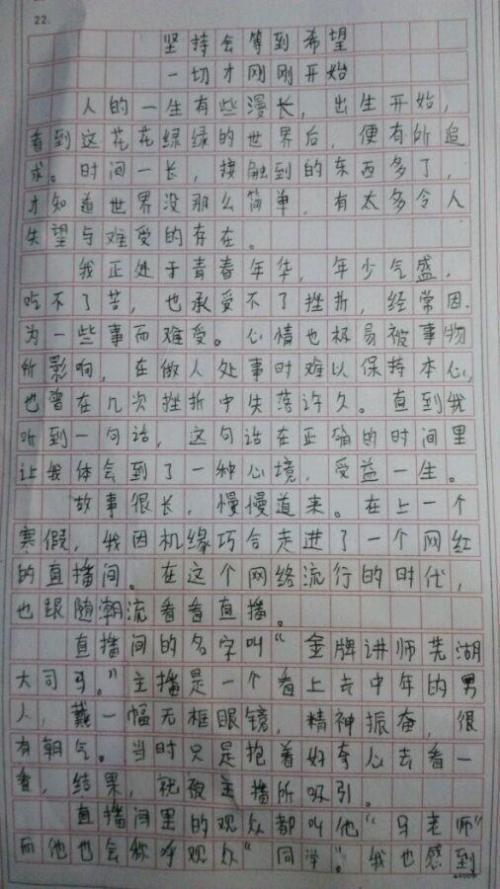 22.
坚持会等到希望
一切才刚刚开始
人的一生有些漫长，出生开始，
看到这花花绿绿的世界后，便有所追
求。时间一长，接触到的东西多了，
才知道世界没那么简单，有太多令人
失望与难受的存在。
我正处于青春年华，年少气盛，
吃不了苦，也承受不了挫折，经常因
为一些事而难受。心情也极易被事物
所影响，在做人处事时难以保持本心，
也曾在几次挫折中失落许久。直到我
听到一句话，这句话在正确的时间里
让我体会到了一种心境，受益一生。
故事很长，慢慢道来。在上一个
寒假，我因机缘巧合走进了一个网红
的直播间。在这个网络流行的时代，
也跟随潮流看看直播。
直播间的名字叫“金牌讲师芜湖
大司马。”主播是一个看上去中年的男
人，戴一幅无框眼镜，精神振奋，很
有朝气。当时只是抱着好奇心去看一
看，结果，就被主播所吸引。
直播间里的观众都叫他“马老师”
而他也会称呼观众“同学”。我也感到